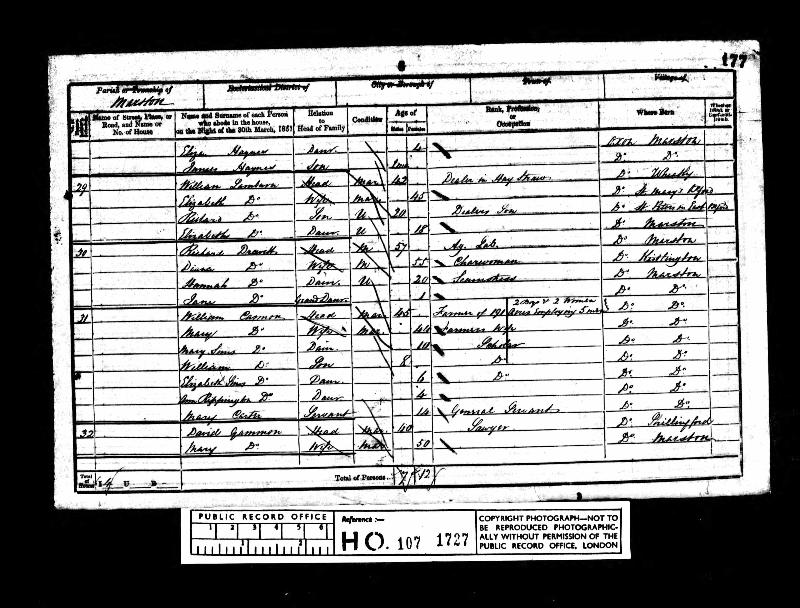 6
177
Parish or Township of Ecclesiastical District of City or Borough of Town of Village of
Marston
Name of Street, Place, or Road, and Name or No. of House
Name and Surname of each Person who abode in the house, on the Night of the 30th March, 1851
Relation to Head of Family
Condition
Age of
Males Females
Rank, Profession, or Occupation
Where Born
Eliza Haynes Daur 4 Oxon Marston
James Haynes Son Do Do
29 William Head Mar 42 Dealer in Hay Straw Do Wheatly
Elizabeth Do Wife Mar 45 Do St Mary's Oxford
Richard Do Son U 20 Dealers Son Do St Peters in East Oxford
Elizabeth Do Daur U 18 Do Marston
30 Richard Head M 57 Ag. Lab. Do Marston
Diana Do Wife M 55 Charwoman Do Kirtlington
Hannah Do Daur U 20 Seamstress Do Marston
Jane Do Grand Daur 1 Do Do
31 William Head Mar 45 Farmer of 191 Acres Employing 5 men 2 Boys & 2 Women Do Do
Mary Do Wife Mar 44 Farmers Wife Do Do
Mary Sims Do Daur 10 Scholar Do Do
William Do Son 8 Do Do Do
Elizabeth Sims Do Daur 6 Do Do Do
Ann Do Daur 4 Do Do
Mary Carter Servant 14 General Servant Do Do
32 David Gammon Head Mar 40 Sawyer Do
Mary Do Wife Mar 50 Do Marston
Total of Houses 4 U B Total of Persons 7 12
PUBLIC RECORD OFFICE
1 2 3 4 5 6
1 2
Reference :—
HO. 107 1727
COPYRIGHT PHOTOGRAPH—NOT TO
BE REPRODUCED PHOTOGRAPHIC-
ALLY WITHOUT PERMISSION OF THE
PUBLIC RECORD OFFICE, LONDON